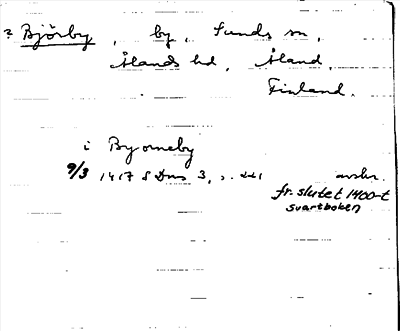 ? Björby, by, Sunds sn,
Ålands hd, Åland,
Finland.
i Byorneby
9/3 1417 SDns 3, s. 221 avskr.
fr. slutet 1400-t
svartboken